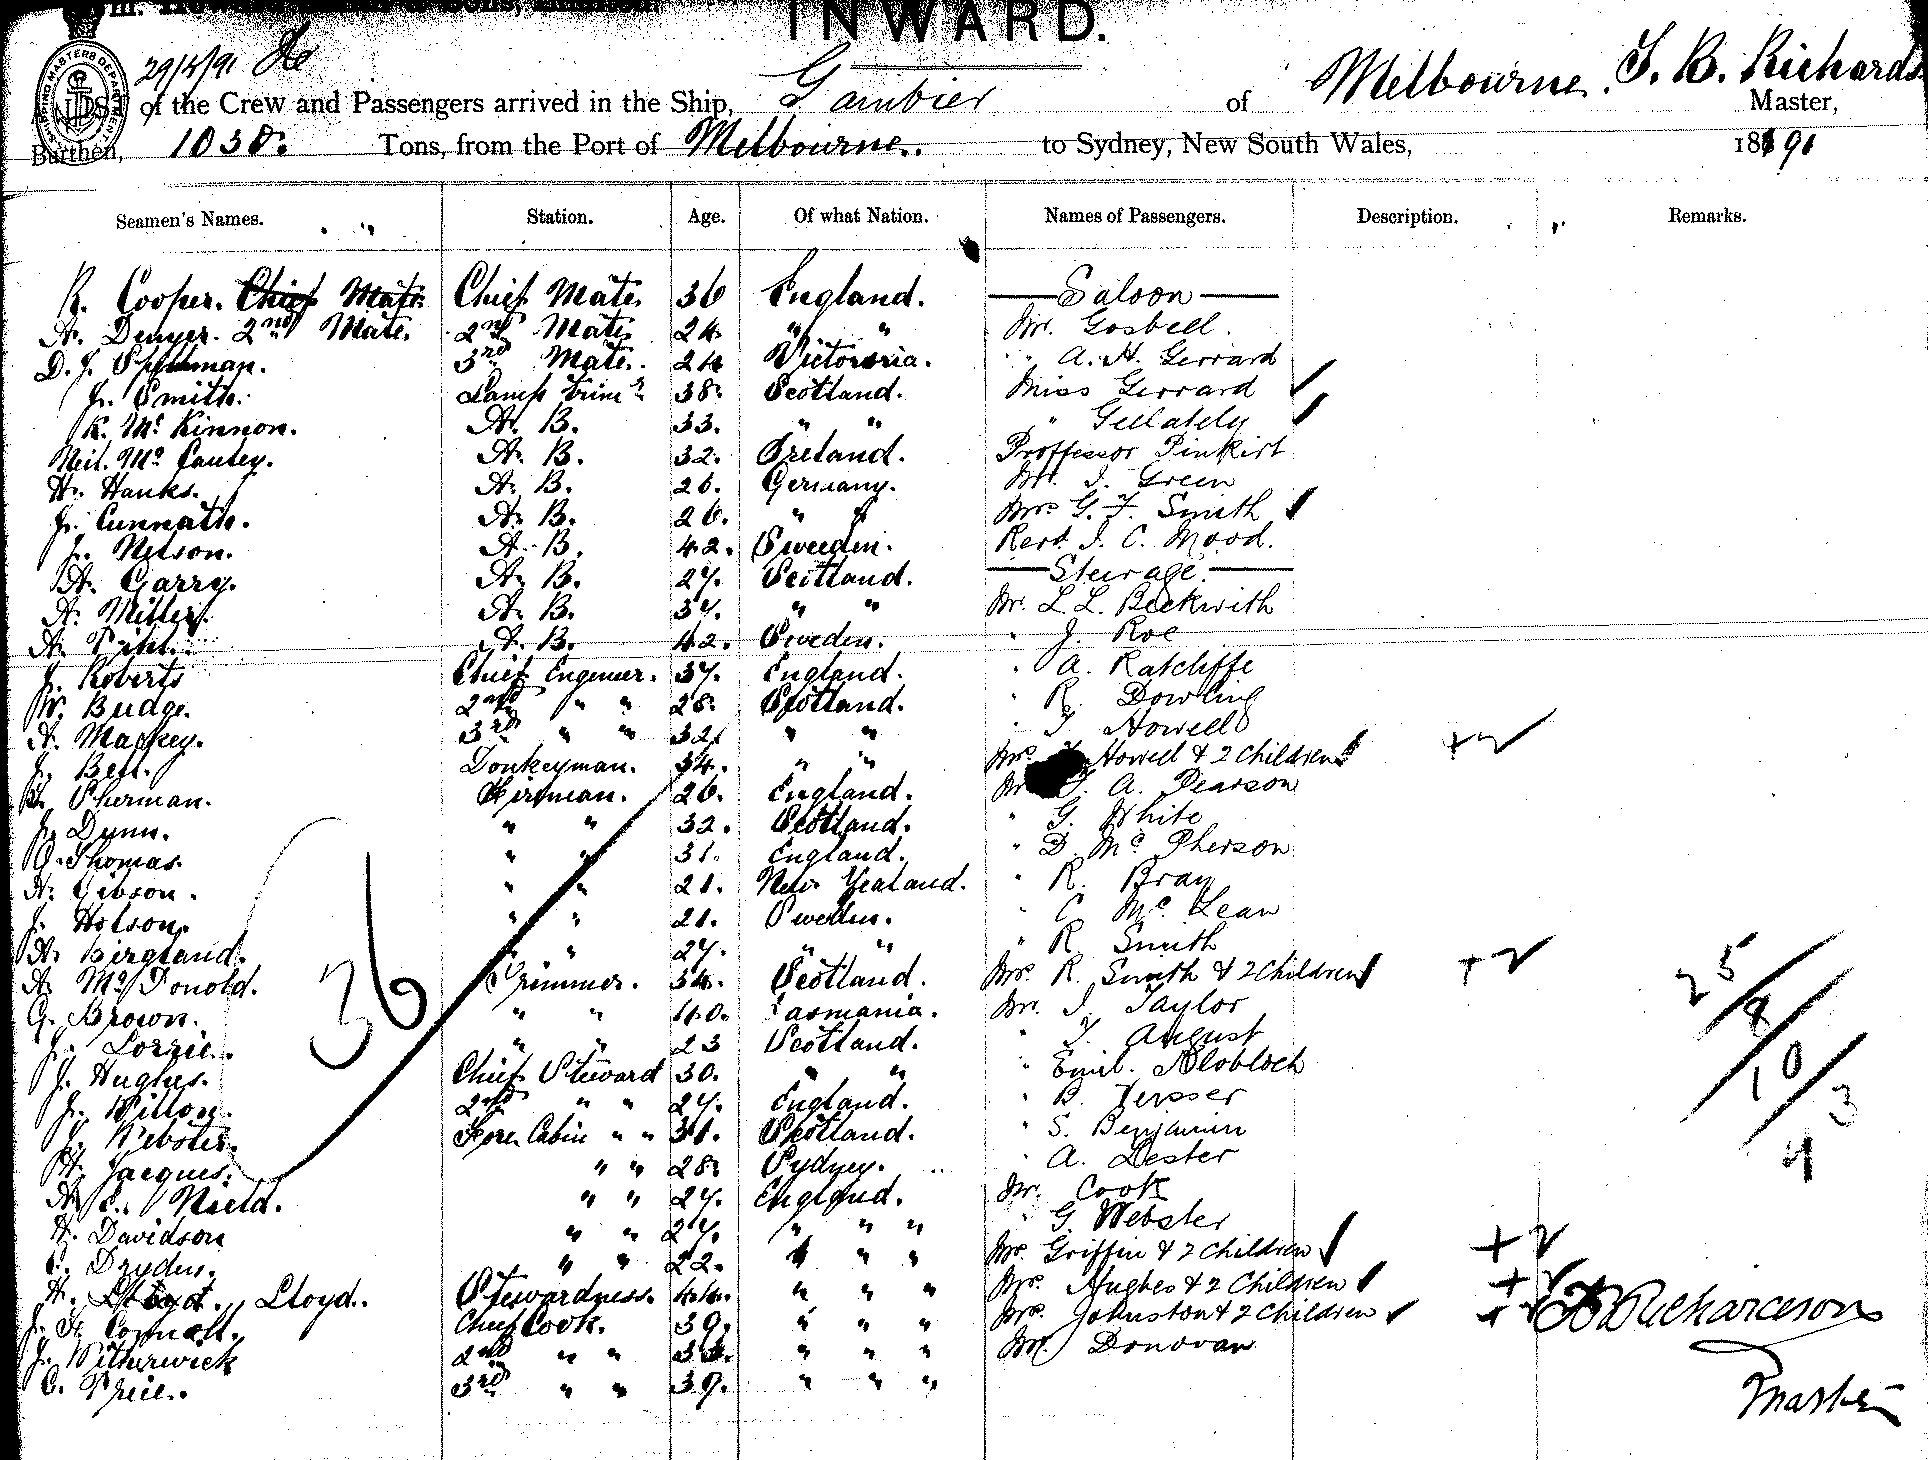 INWARD.
29/4/91
A LIST of the Crew and Passengers arrived in the Ship, Gambier of Melbourne. T. B. Richards Master,
Burthen, 1038. Tons, from the Port of Melbourne. to Sydney, New South Wales, 1891
Seamen's Names. Station. Age. Of what Nation. Names of Passengers. Description. Remarks.
R. Cooper. Chief Mate. Chief Mate. 36 England. Saloon
A. Denyer. 2nd Mate. 2nd Mate 24 " " Mr. Gosbell.
D. J. 3rd Mate. 24 Victoria. " A. H. Gerrard
J. Smith. Lamp Trimr 38. Scotland. Miss Gerrard
K. Mc Kinnon. A. B. 33. " " " Gellately
Neil. Mc Cauley. A. B. 32. Ireland. Proffessor Pinkirt
H. Hanks. A. B. 26. Germany. Mr. J. Green
J. Cunnath. A. B. 26. " " Mrs G. F. Smith
J. Nelson. A. B. 42. Sweeden. Revd. J. C. Wood.
A. Garry. A. B. 27. Scotland. Steerage.
A. Miller. A. B. 37. " " Mr. L. L. Beckwith
A. A. B. 42. Sweden. " J. Roe
J. Roberts Chief Engeneer. 37. England. " A. Ratcliffe
W. Budge. 2nd " " 28. Scotland. " R. Dowling
A. Mackey. 3rd " " 32. " " " T Howell
J. Bell. Donkeyman. 34. " " Mrs Howell & 2 Children +2
Sherman. Fireman. 26. England. Mr A. Pearson
J. Dunn. " " 32. Scotland. " G. White
G. Thomas. " " 31. England. " D. Mc Pherson
A. Gibson. " " 21. New Zealand. " R. Bray
J. Holson. " " 21. Sweden. " C. Mc Lean
A. Birgland. " " 27. " " " R. Smith
A. McDonold. Trimmer. 34. Scotland. Mrs. R. Smith & 2 Children +2 25
G. Brown. " " 40. Tasmania. Mr. J. Taylor 8
J. Lorrie. " " 23 Scotland. " T. August
J. Hughes. Chief Steward 30. " " " Emil. Klobloch 10
J. Witton. 2nd " " 27. England. " B. 3
J. Webster. Fore Cabin " " 31. Scotland. " S. Benjamin
H. Jacques. " " 28. Sydney. " A. Lester 4
A. C. Nield. " " 27. England. Mr. Cook
A. Davidson " " 27. " " " " G. Webster
C. Dryden. " " 22. " " " Mrs. Griffin & 2 Children +2
H. Lloyd. Stewardness. 44. " " " Mrs. Hughes & 2 Children +2
J. H. Cornell. Chief Cook. 39. " " " Mrs. Johnston & 2 Children +2 Richardson
J. Witherwick 2nd " " 33. " " " Mr. Donovan
C. Price. 3rd " " 39. " " " Master
36